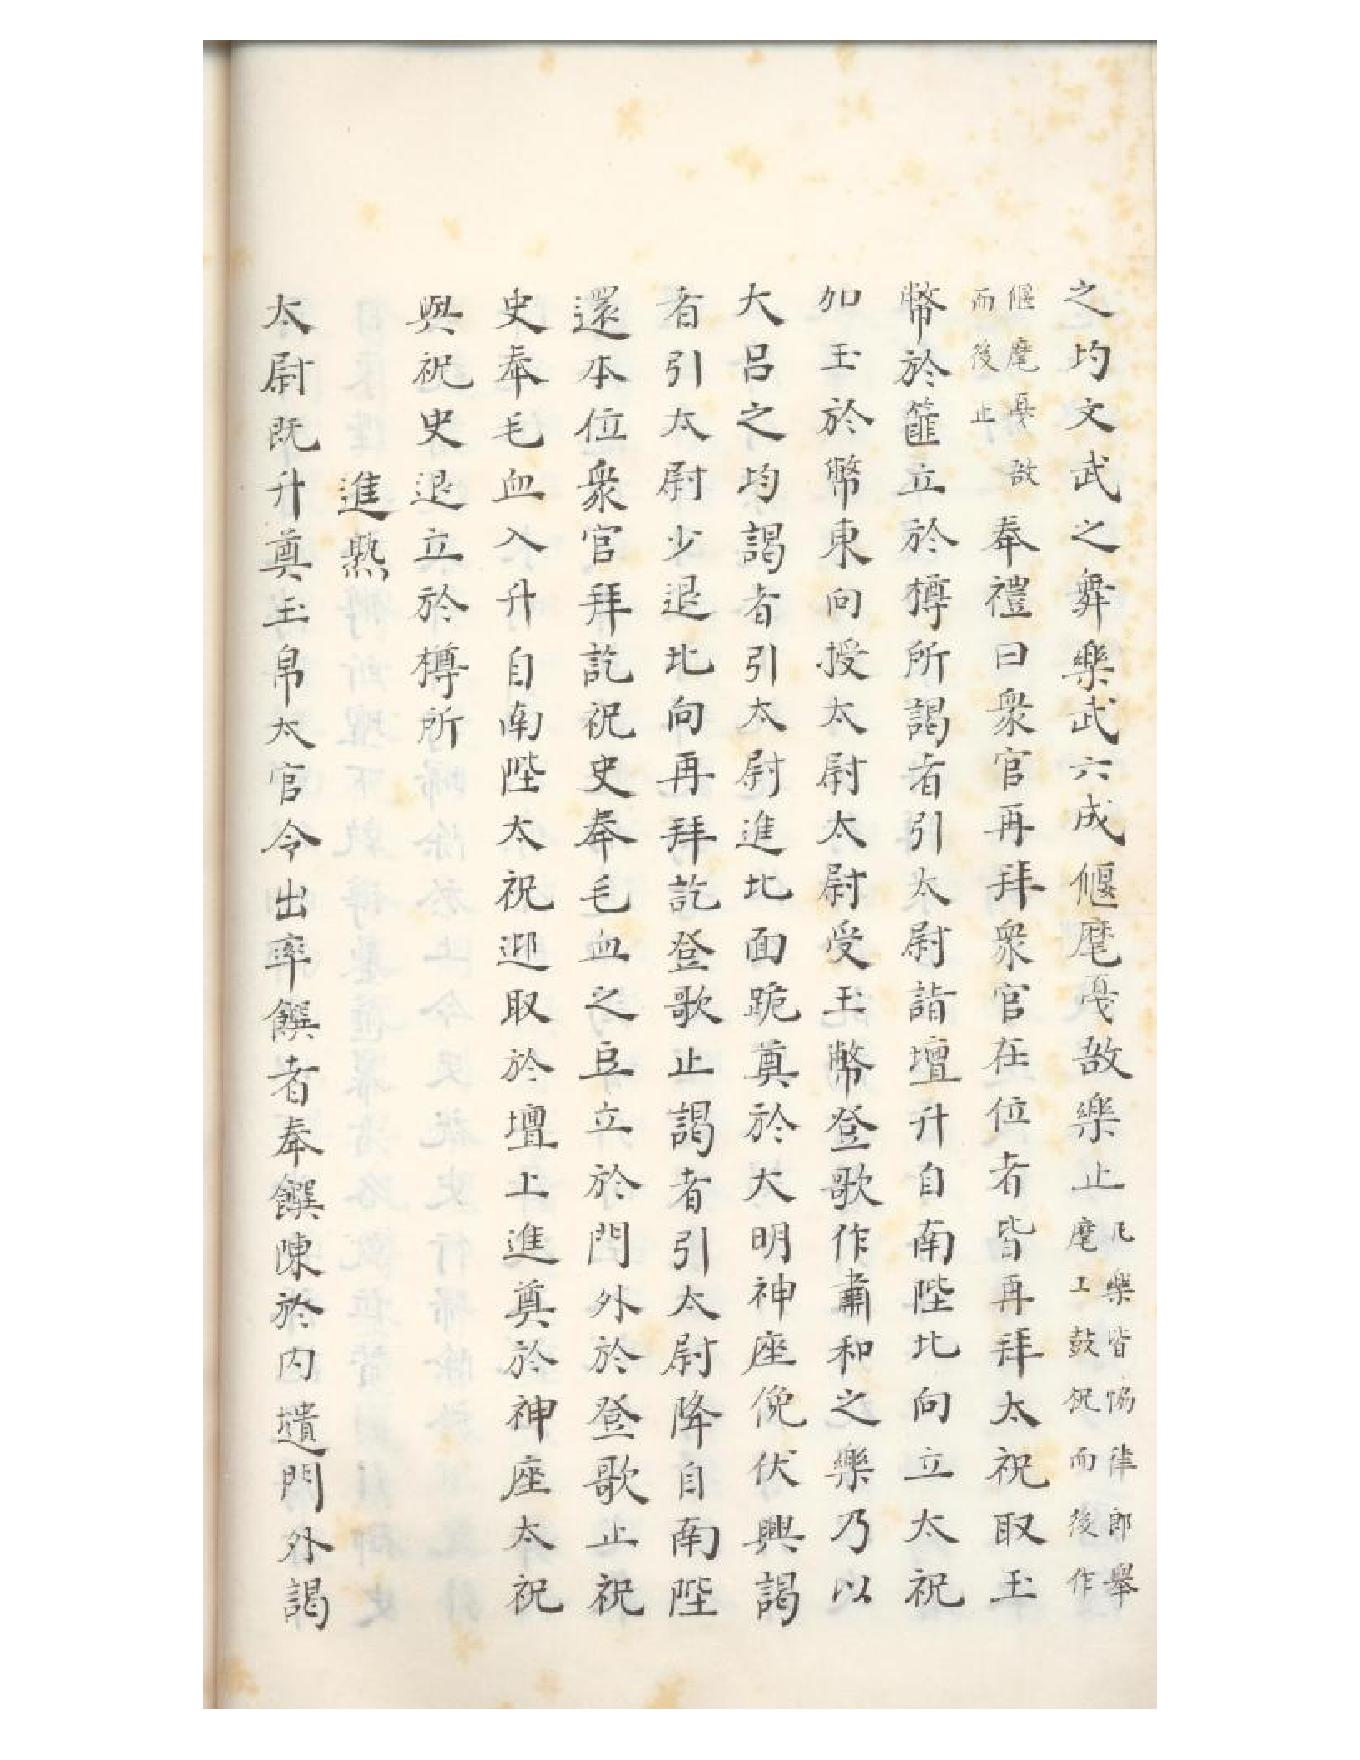 之均文武之舞樂武六成偃麾戛敔樂止凡樂皆協律郎舉
麾工鼓柷而後作
偃麾戛敔
而後止
奉禮曰衆官再拜衆官在位者皆再拜太祝取玉
幣於篚立於樽所謁者引太尉詣壇升自南陛北向立太祝
加玉於幣東向授太尉太尉受玉幣登歌作肅和之樂乃以
大呂之均謁者引太尉進北面跪奠於大明神座俛伏興謁
者引太尉少退北向再拜訖登歌止謁者引太尉降自南陛
還本位衆官拜訖祝史奉毛血之豆立於門外於登歌止祝
史奉毛血入升自南陛太祝迎取於壇上進奠於神座太祝
與祝史退立於樽所
進熟
太尉既升奠玉帛太官令出率饌者奉饌陳於內壝門外謁